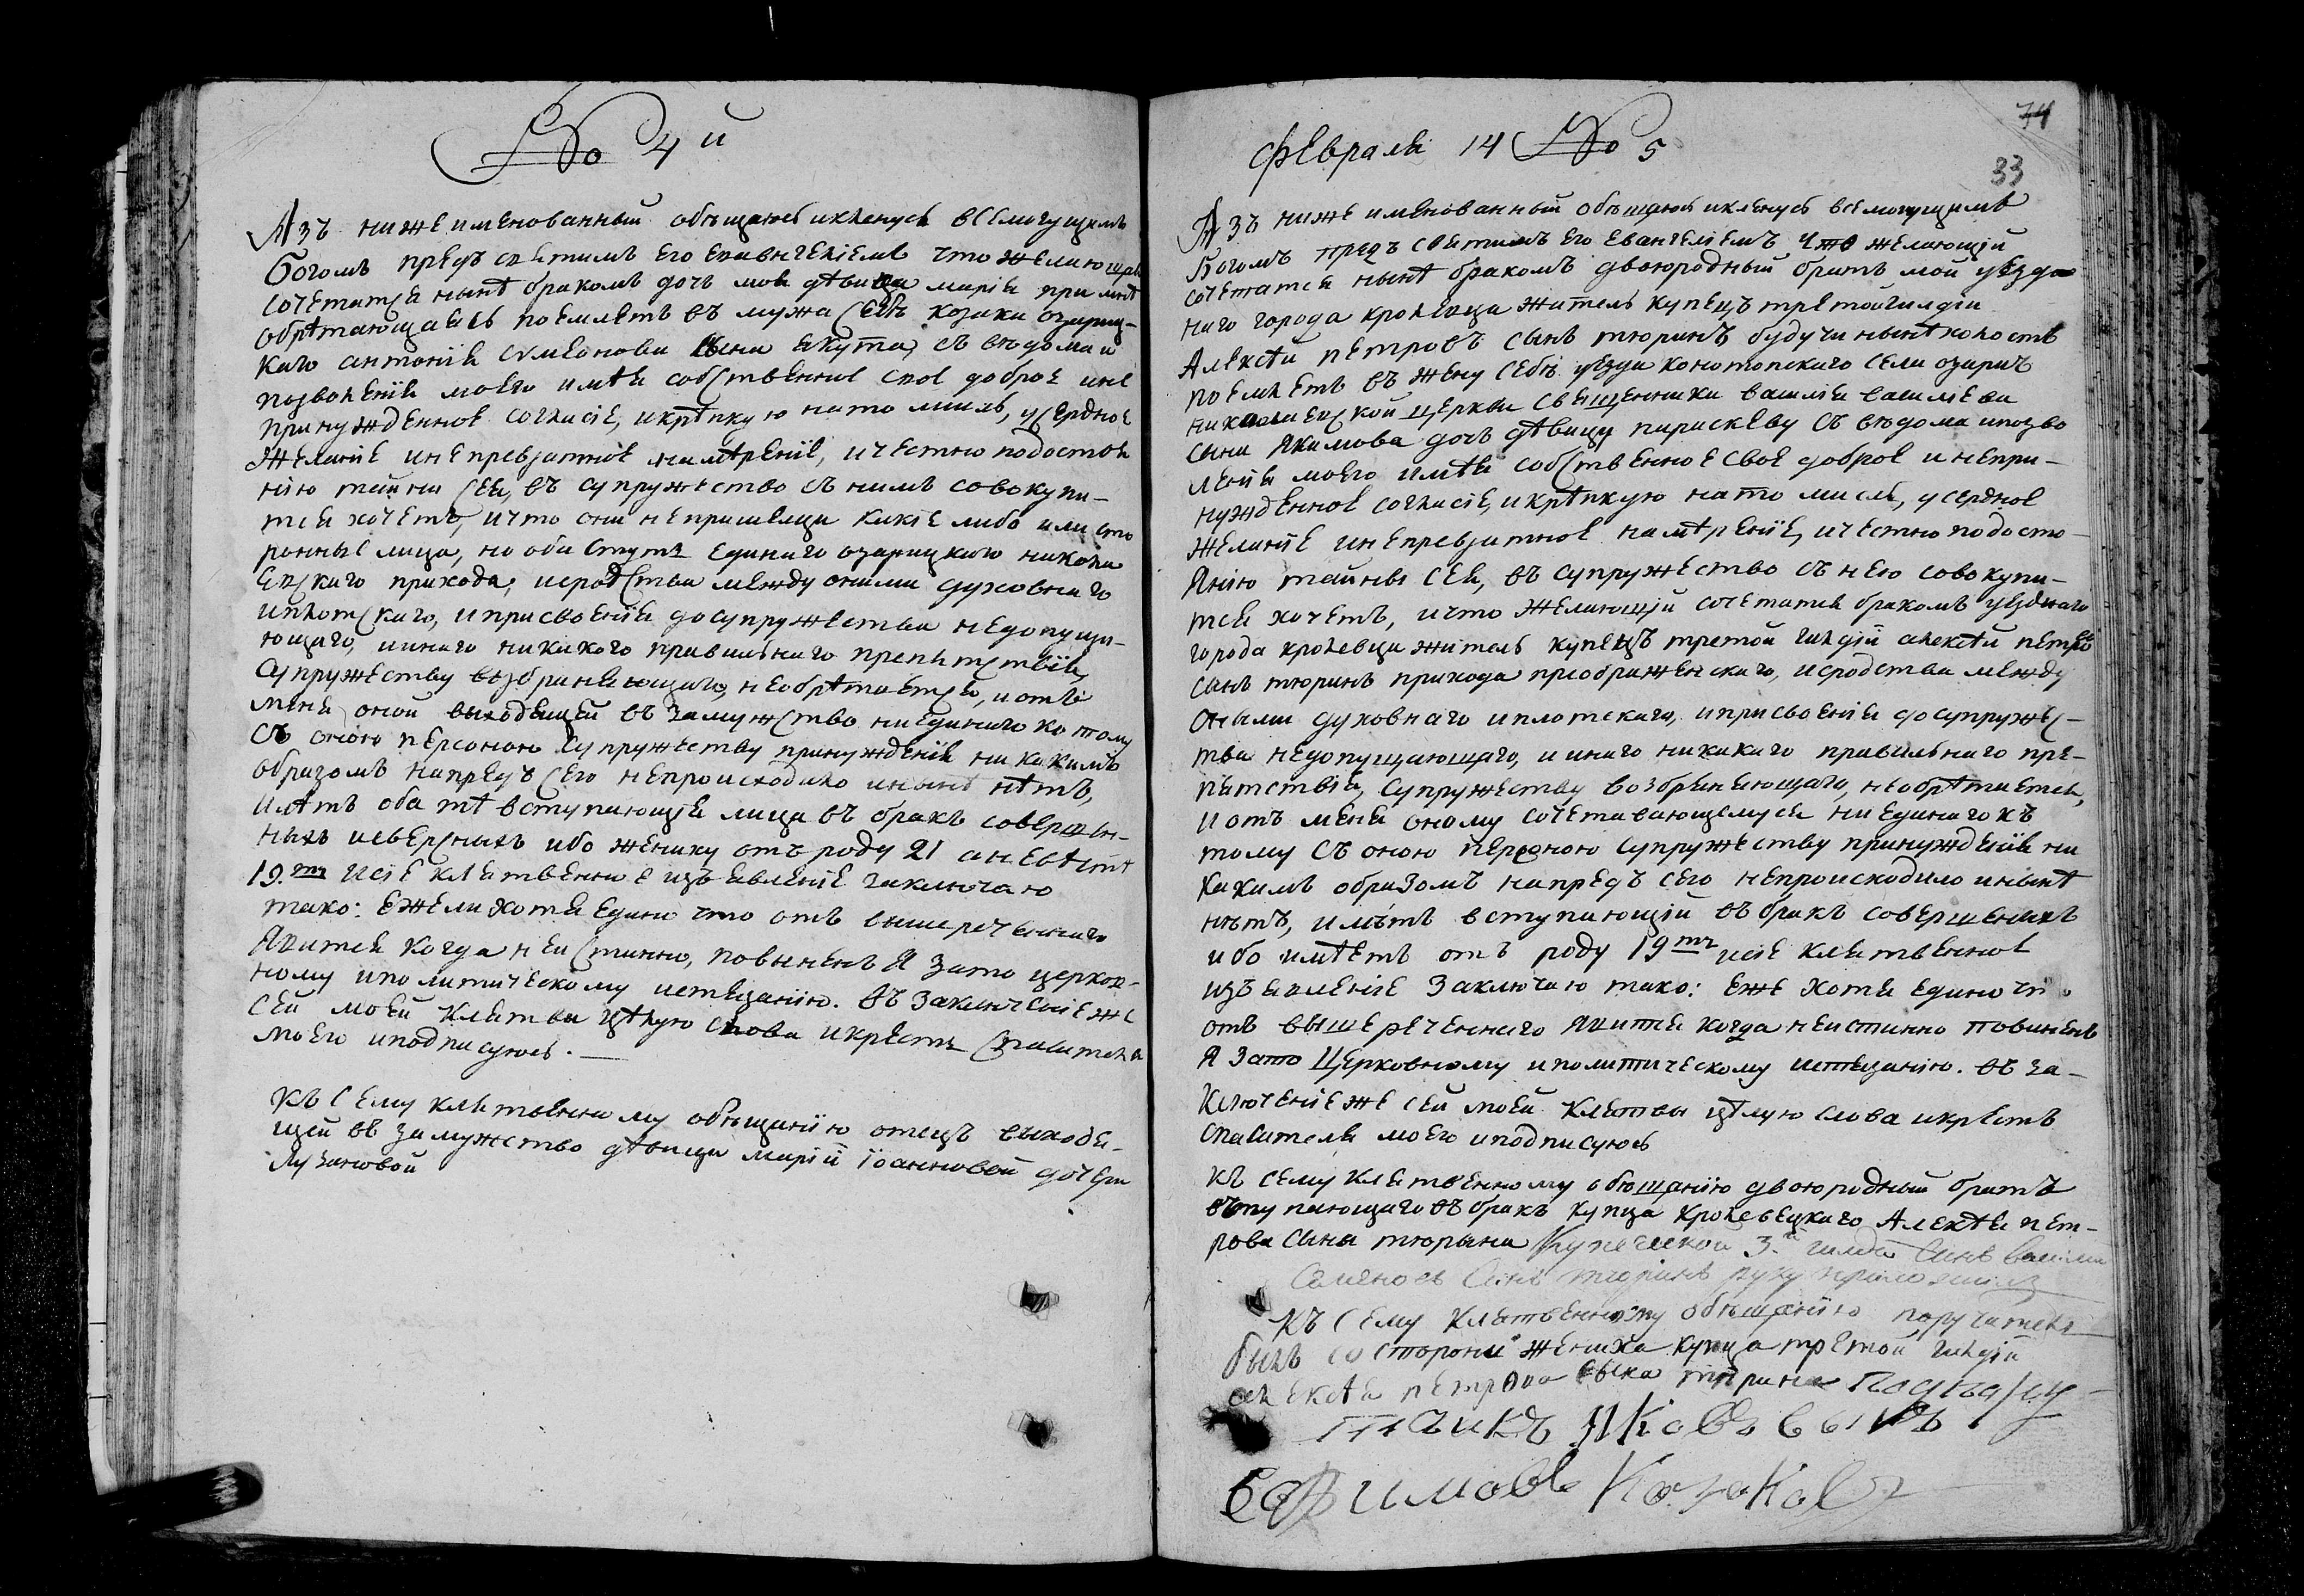 № 4й
Азъ нижеименованный обѣщаюсь и кленусь всемогущимъ
Богомъ предъ светимъ его евангелiемъ что желающая
сочетатся нынѣ бракомъ дочь моя дѣвица марiя при мнѣ
обрѣтающаясь поемлетъ въ мужа себѣ козака озариц-
каго антонiя сумеонова сына якута, съ вѣдома и
позволенiя моего имѣя собственное свое доброе и не
принужденное согласiе, и крѣпкую на то мисль, усердное
желанiе и непревзатное намѣренiе, и честно по достоя
нiю тайны сея, въ супружество съ нимъ совокупи-
тся хочетъ, и что они не пришелци какiе либо или сто
ронные лица, но оба суть единаго озарицкаго никола
евскаго прихода, и сродства между оними духовнаго
и плотскаго, и присвоенiя до супружества недопуща-
ющаго, и инаго никакого правильнаго препятствiя,
супружеству возбраняющаго, необрѣтается, и отъ
мене оной выходящей въ замужство ниединаго ко тому
съ оною персоною супружеству принужденiя ни какимъ
образомъ напредъ сего непроисходило и нынѣ нѣтъ,
имѣтъ оба тѣ вступающiя лица въ бракъ совершен-
ныхъ и совершныхъ ибо женику отъ роду 21 а невѣстѣ
19.ть и сiе клятвенное изъявленiе заключаю
тако: ежели хотя едино что отъ вышереченнаго
явится когда неистинно, повиненъ я зато церков-
ному и политическому истязанiю. въ заключенiе же
сей моей клятви цѣлую слова и крестъ спасителя
моего и подписуюсь. —
Къ сему клятвенному обѣщанiю отецъ выходя-
щей въ замужство дѣвици марiй iоанновой дочери
лузановой
74
февраля 14 № 5
33
Азъ нижеименованный обѣщаюсь и кленусь всемогущимъ
Богомъ предъ светимъ его евангелiемъ что желающiй
сочетатся нынѣ бракомъ двоюродный братъ мой уезд
наго города кролевца житель купецъ третой гилдiи
Алексѣй петровъ сынъ тюринъ будучи нынѣ холостъ
поемлетъ въ жену себѣ уезда конотопскаго села озаричъ
николаевской церкви священника василiя василiева
сына якимова дочь дѣвицу парискеву съ вѣдома и позво
ленiя моего имѣя собственное свое доброе и непри-
нужденное согласiе, и крѣпкую на то мисль, усердное
желанiе и непревзатное намѣренiе, и честно по досто-
янiю тайны сея, въ супружество съ нею совокупи-
тся хочетъ, и что желающiй сочетатся бракомъ уезднаго
города кролевца житель купецъ третой гилдiй алексѣй петровъ
сынъ тюринъ прихода преображенскаго, и сродства между
оными духовнаго и плотскаго, и присвоенiя до супружес-
тва недопущающаго, и инаго никакаго правильнаго пре-
пятствiя, супружеству возбраняющаго, необрѣтается,
и отъ мене оному сочетавающемуся ниединаго къ
тому съ оною персоною супружеству принужденiя ни
какимъ образомъ напредъ сего непроисходило и нынѣ
нѣтъ, и лѣтъ вступающiй въ бракъ совершенихъ
ибо имѣетъ отъ роду 19ть и сiе клятвенное
изъявленiе заключаю тако: еже хотя едино что
отъ вышереченнаго явится когда неистинно повиненъ
я зато церковному и политическому истязанiю. въ за-
ключенiе же сей моей клятвы цѣлую слова и крестъ
спасителя моего и подписуюсь
Къ сему клятвенному обѣщанiю двоюродный братъ
вступающаго въ бракъ купца кролевецкаго Алексѣя пет-
рова сына тюрына купеческой 3.й гилдi синъ василiй
Семеновъ синъ тюринъ руку приложилъ
Къ сему клятвенному обѣщанiю поручителя
былъ со сторони жениха купца третой гилдiй
алексѣя петрова сына тюрина подканце
Яковъ сынъ
Козаковъ